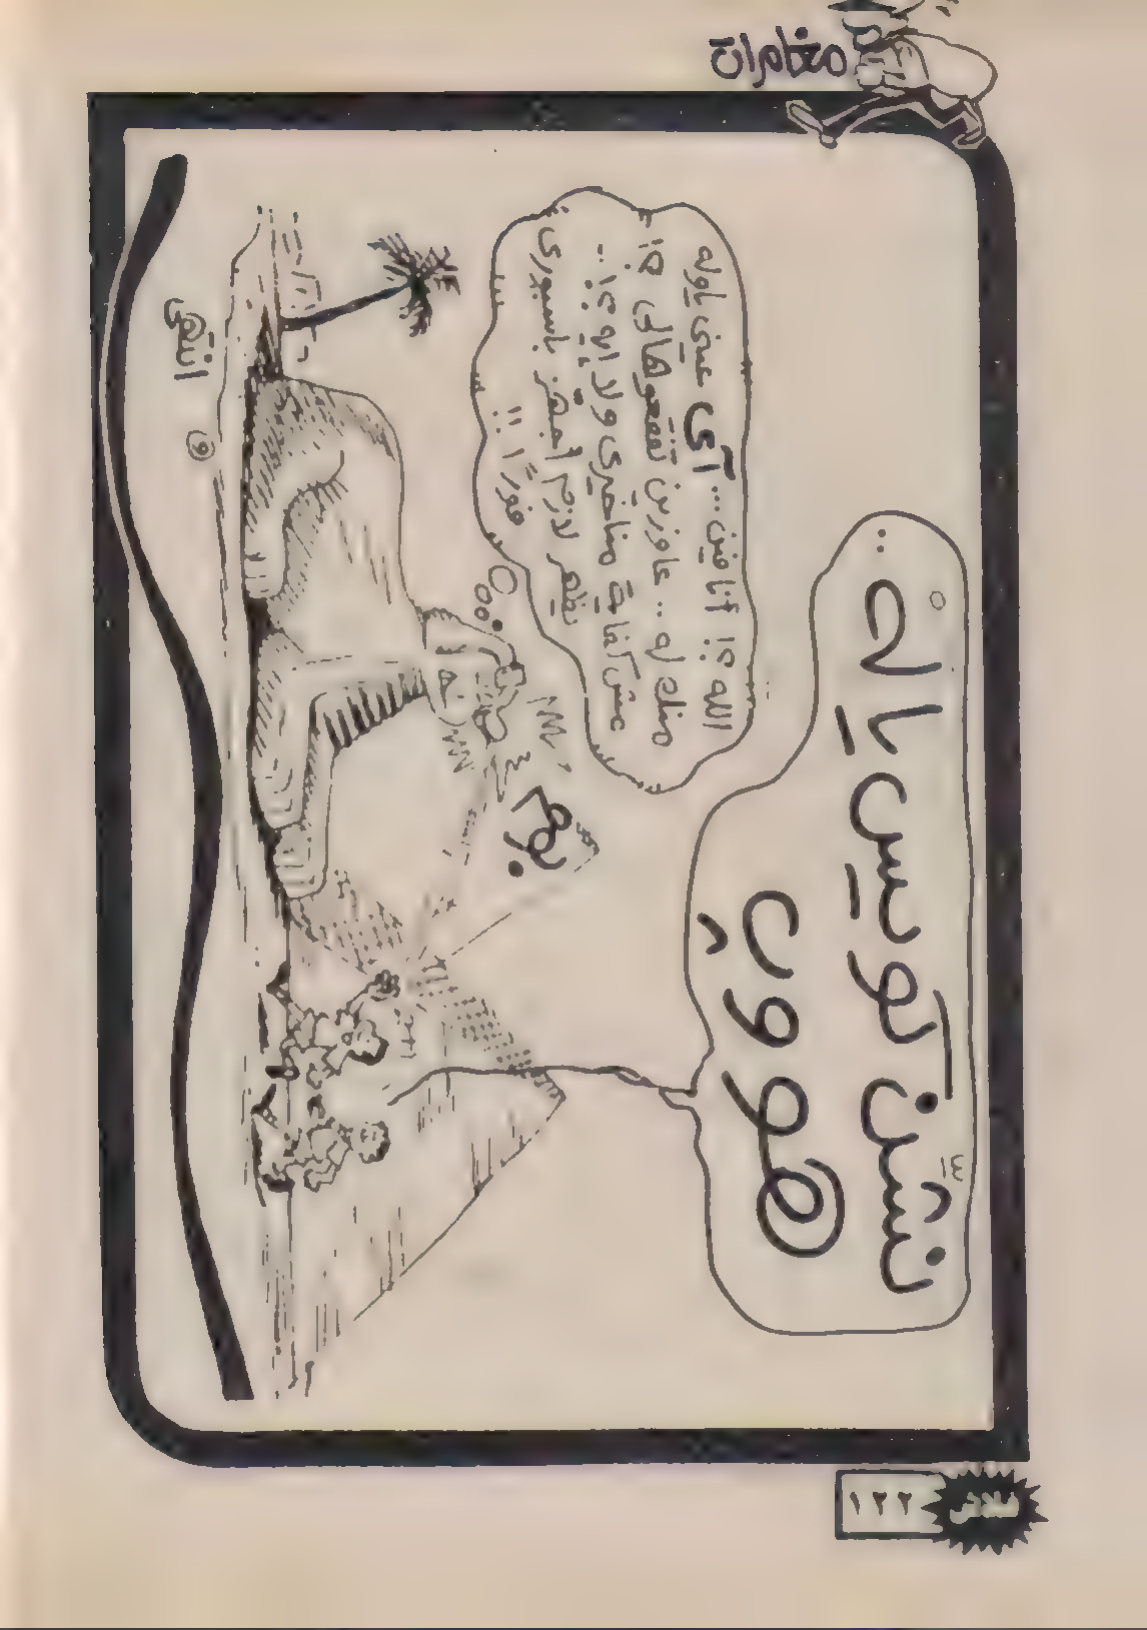 مغامرات
نشّن كويس يا له ..
هووب
الله ؟! أنا فين ... آى عينى ياوله
منك له .. عاوزين تفقعوهالى ؟!
مش كفاية مناخيرى ولا إيه ؟! ..
يظهر لازم أجهز باسبورى
فورًا !!
بوم
انتهى
فلاش
١٢٢